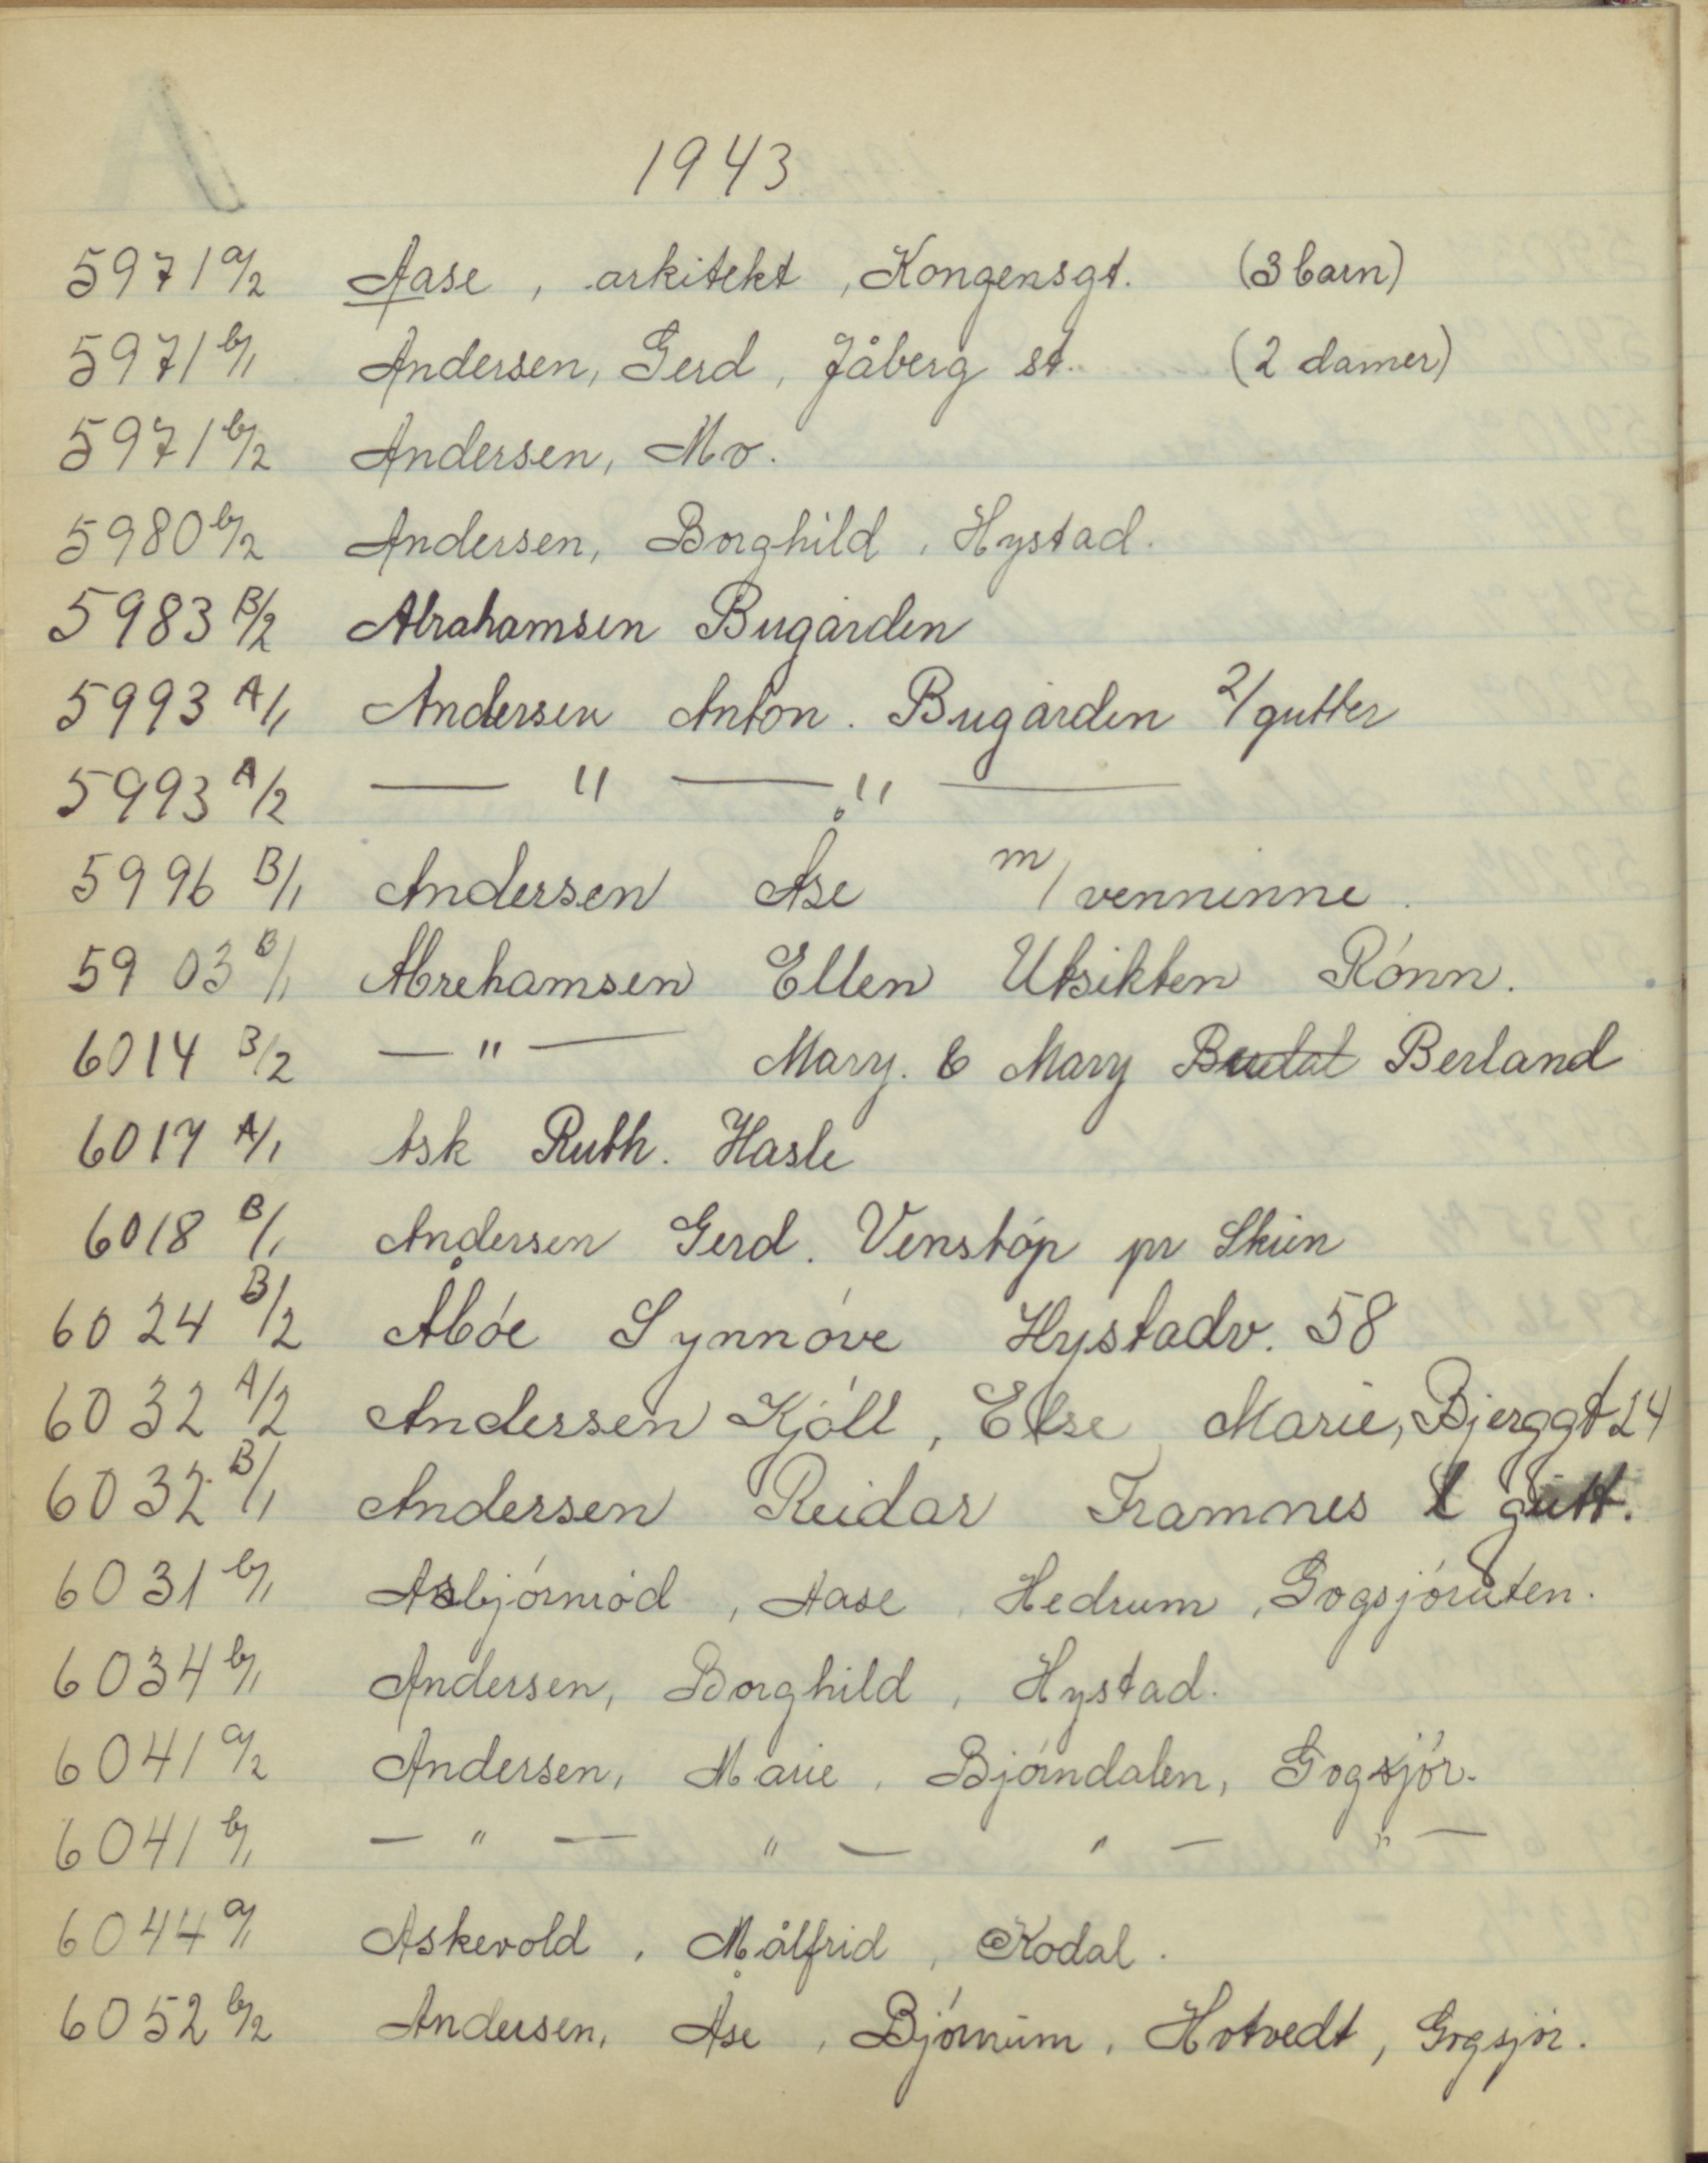 A
1943
5971 a/2 Aase, arkitekt, Kongensgt. (3 barn)
5971 b/1 Andersen, Gerd, Jåberg st. (2 damer)
5971 b/2 Andersen, Mo.
5980 b/2 Andersen, Borghild, Hystad.
5983 B/2 Abrahamsen Bugården
5993 A/1 Andersen Anton. Bugården 2/gutter
5993 A/2 — " — " —
5996 B/1 Andersen Åse m/venninne.
5903 B/1 Abrehamsen Ellen Utsikten Rónn.
6014 B/2 — " — Mary. & Mary Berland
6017 A/1 Ask Ruth. Hasle
6018 B/1 Andersen Gerd. Venstóp pr Skien
6024 B/2 Åbóe Synnóve Hystadv. 58
6032 A/2 Andersen Kjóll, Else Marie, Bjerggt 24
6032 B/1 Andersen Reidar Framnes 1 gutt.
6031 b/1 Asbjórnród, Aase, Hedrum, Gogsjóruten.
6034 b/1 Andersen, Borghild, Hystad.
6041 a/2 Andersen, Marie, Bjórndalen, Gogsjór.
6041 b/1 — " — " — " — " —
6044 a/1 Askevold, Målfrid, Kodal.
6052 b/2 Andersen, Åse, Bjórnum, Hotvedt, Gogsjór.